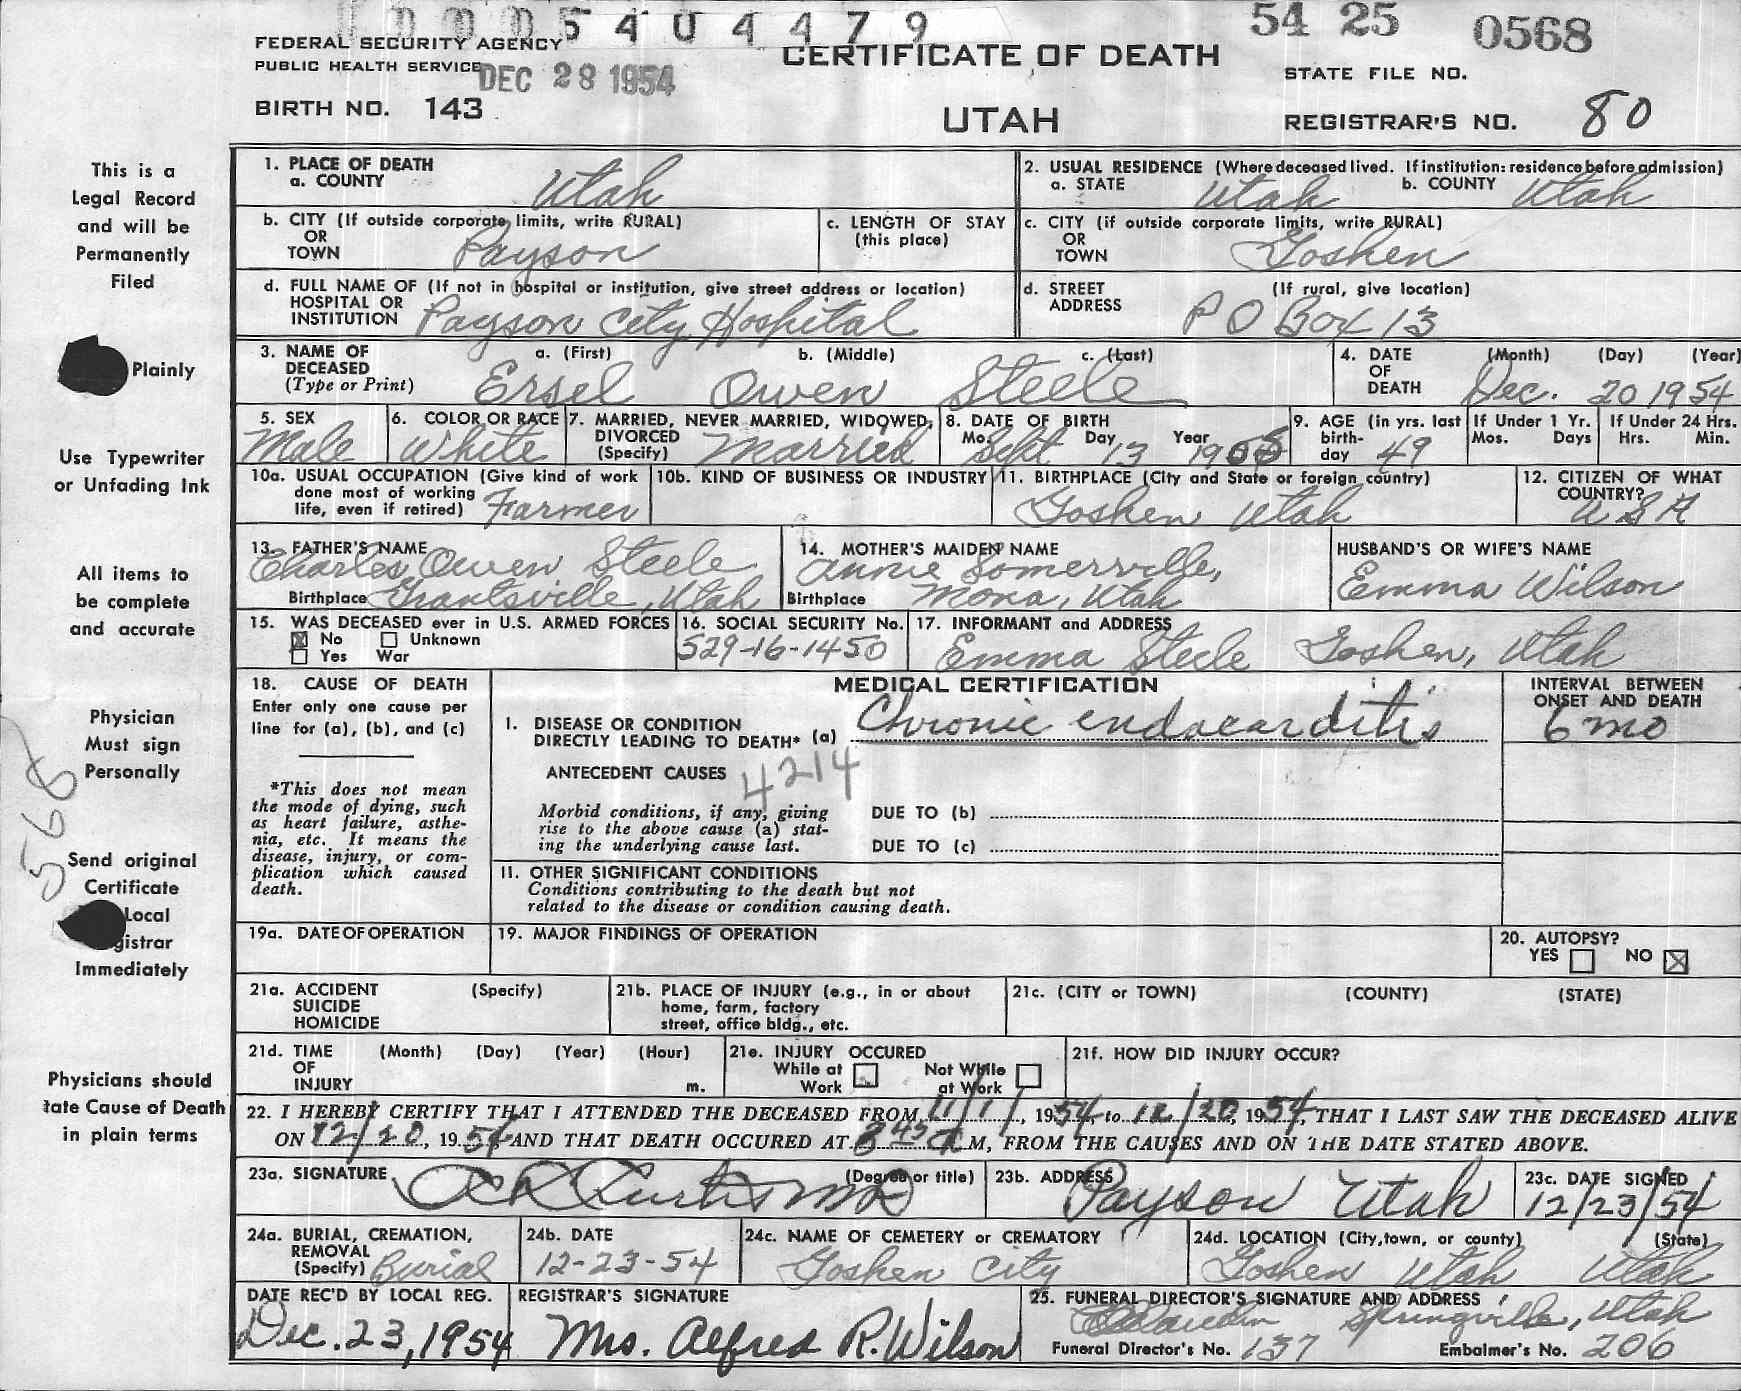 0 0 0 5 4 0 4 4 7 9
54 25 0568
FEDERAL SECURITY AGENCY
PUBLIC HEALTH SERVICE
DEC 28 1954
CERTIFICATE OF DEATH
STATE FILE NO.
BIRTH NO. 143
UTAH
REGISTRAR'S NO. 80
This is a
Legal Record
and will be
Permanently
Filed
Plainly
Use Typewriter
or Unfading Ink
All items to
be complete
and accurate
Physician
Must sign
Personally
568
Send original
Certificate
Local
gistrar
Immediately
Physicians should
tate Cause of Death
in plain terms
1. PLACE OF DEATH
a. COUNTY Utah
2. USUAL RESIDENCE (Where deceased lived. If institution: residence before admission)
a. STATE Utah b. COUNTY Utah
b. CITY (If outside corporate limits, write RURAL)
OR
TOWN Payson
c. LENGTH OF STAY
(this place)
c. CITY (if outside corporate limits, write RURAL)
OR
TOWN Goshen
d. FULL NAME OF (If not in hospital or institution, give street address or location)
HOSPITAL OR
INSTITUTION Payson City Hospital
d. STREET (If rural, give location)
ADDRESS P O Box 13
3. NAME OF a. (First) b. (Middle) c. (Last)
DECEASED
(Type or Print) Ersel Owen Steele
4. DATE (Month) (Day) (Year)
OF
DEATH Dec. 20 1954
5. SEX
Male
6. COLOR OR RACE
White
7. MARRIED, NEVER MARRIED, WIDOWED,
DIVORCED
(Specify) Married
8. DATE OF BIRTH
Mo. Day Year
Sept 13 1905
9. AGE (in yrs. last
birth-
day 49
If Under 1 Yr.
Mos. Days
If Under 24 Hrs.
Hrs. Min.
10a. USUAL OCCUPATION (Give kind of work
done most of working
life, even if retired) Farmer
10b. KIND OF BUSINESS OR INDUSTRY
11. BIRTHPLACE (City and State or foreign country)
Goshen Utah
12. CITIZEN OF WHAT
COUNTRY?
U S A
13. FATHER'S NAME
Charles Owen Steele
Birthplace Grantsville, Utah
14. MOTHER'S MAIDEN NAME
Annie Somerville,
Birthplace Mona, Utah
HUSBAND'S OR WIFE'S NAME
Emma Wilson
15. WAS DECEASED ever in U.S. ARMED FORCES
☒ No ☐ Unknown
☐ Yes War
16. SOCIAL SECURITY No.
529-16-1450
17. INFORMANT and ADDRESS
Emma Steele Goshen, Utah
18. CAUSE OF DEATH
Enter only one cause per
line for (a), (b), and (c)
*This does not mean
the mode of dying, such
as heart failure, asthe-
nia, etc. It means the
disease, injury, or com-
plication which caused
death.
MEDICAL CERTIFICATION
INTERVAL BETWEEN
ONSET AND DEATH
I. DISEASE OR CONDITION
DIRECTLY LEADING TO DEATH* (a) Chronic endocarditis 6 mo
ANTECEDENT CAUSES 4214
Morbid conditions, if any, giving
rise to the above cause (a) stat-
ing the underlying cause last.
DUE TO (b)
DUE TO (c)
11. OTHER SIGNIFICANT CONDITIONS
Conditions contributing to the death but not
related to the disease or condition causing death.
19a. DATE OF OPERATION
19. MAJOR FINDINGS OF OPERATION
20. AUTOPSY?
YES ☐ NO ☒
21a. ACCIDENT (Specify)
SUICIDE
HOMICIDE
21b. PLACE OF INJURY (e.g., in or about
home, farm, factory
street, office bldg., etc.
21c. (CITY or TOWN) (COUNTY) (STATE)
21d. TIME (Month) (Day) (Year) (Hour)
OF
INJURY m.
21e. INJURY OCCURED
While at Work ☐ Not While at Work ☐
21f. HOW DID INJURY OCCUR?
22. I HEREBY CERTIFY THAT I ATTENDED THE DECEASED FROM 11/1/, 1954, to 12/20, 1954, THAT I LAST SAW THE DECEASED ALIVE
ON 12/20, 1954 AND THAT DEATH OCCURED AT 8 45 A M, FROM THE CAUSES AND ON THE DATE STATED ABOVE.
23a. SIGNATURE (Degree or title)
Curtis MD
23b. ADDRESS
Payson Utah
23c. DATE SIGNED
12/23/54
24a. BURIAL, CREMATION,
REMOVAL
(Specify) Burial
24b. DATE
12-23-54
24c. NAME OF CEMETERY or CREMATORY
Goshen City
24d. LOCATION (City, town, or county) (State)
Goshen Utah Utah
DATE REC'D BY LOCAL REG.
Dec. 23, 1954
REGISTRAR'S SIGNATURE
Mrs. Alfred R. Wilson
25. FUNERAL DIRECTOR'S SIGNATURE AND ADDRESS
Springville, Utah
Funeral Director's No. 137 Embalmer's No. 206